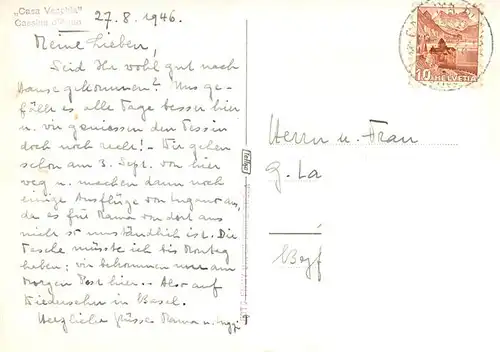 „Casa Vecchia"
Cassina d'Agno
27.8.1946.
Meine Lieben,
Seid Ihr wohl gut nach
Hause gekommen? Uns ge-
fällt es alle Tage besser hier
u. wir geniessen den Tessin
doch noch recht! - Wir gehen
schon am 3. Sept. von hier
weg u. machen dann noch
einige Ausflüge von Lugano aus,
da es für Mama von dort aus
nicht so umständlich ist. Die
Tasche müsste ich bis Montag
haben; wir bekommen nur am
Morgen Post hier. - Also auf
Wiedersehen in Basel.
Herzliche Grüsse Mama u.
10 HELVETIA
Herrn u. Frau
G. La